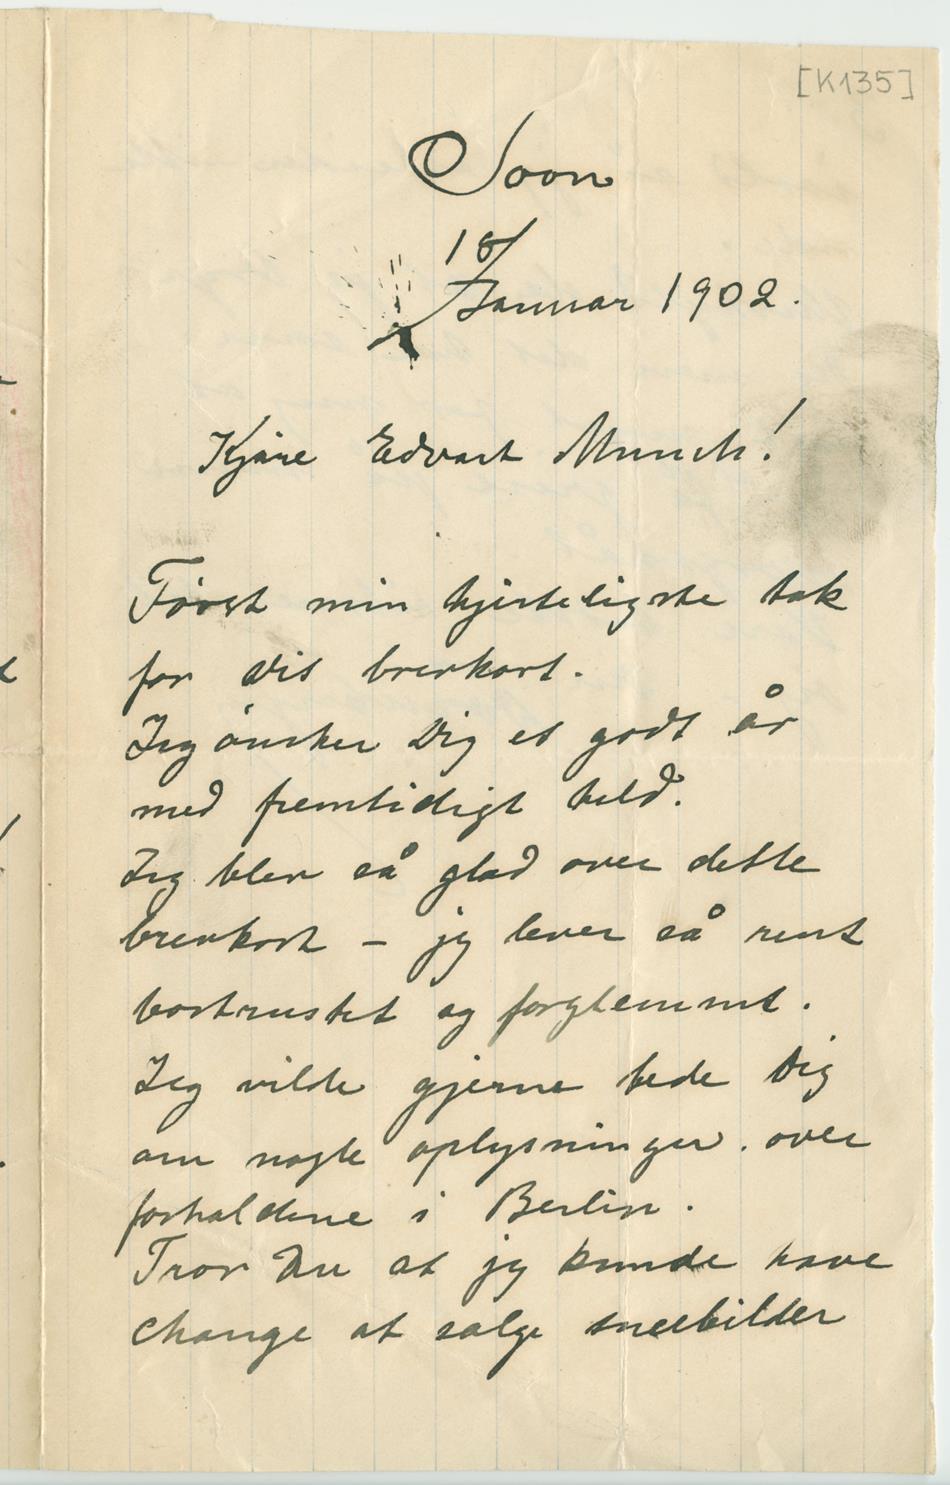 [K135]
Soon
18/
Januar 1902.
Kjäre Edvart Munch!
Först min hjerteligste tak
for Dit brevkort.
Jeg önsker Dig et godt år
med fremtidigt held.
Jeg blev så glad over dette
brevkort – jeg lever så rent
bortrustet og forglemmt.
Jeg vilde gjerne bede Dig
om nogle oplysninger. over
forholdene i Berlin.
Tror Du at jeg kunde have
change at sälge sneebilder